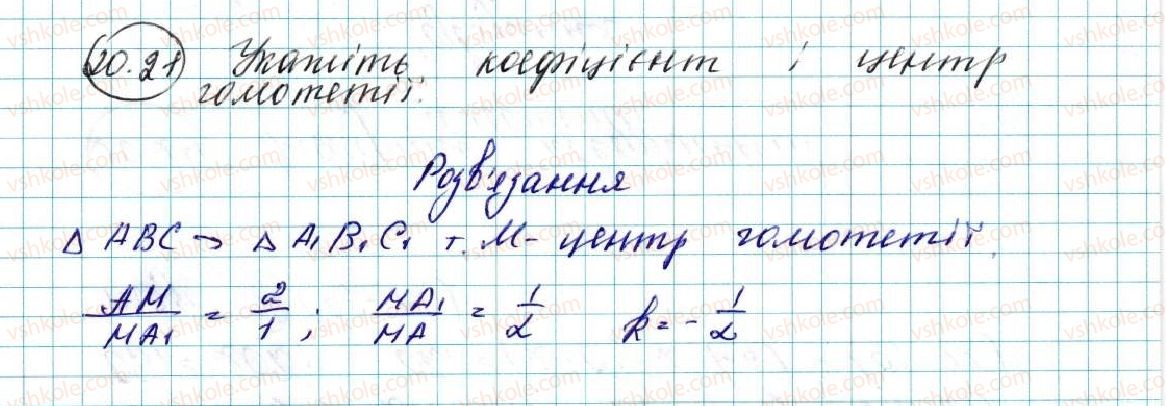 20.21 Укажіть коефіцієнт і центр
гомотетії.
Розв'язання
△ ABC → △ A₁B₁C₁ т. M - центр гомотетії.
AM/MA₁ = 2/1; MA₁/MA = 1/2 k = -1/2